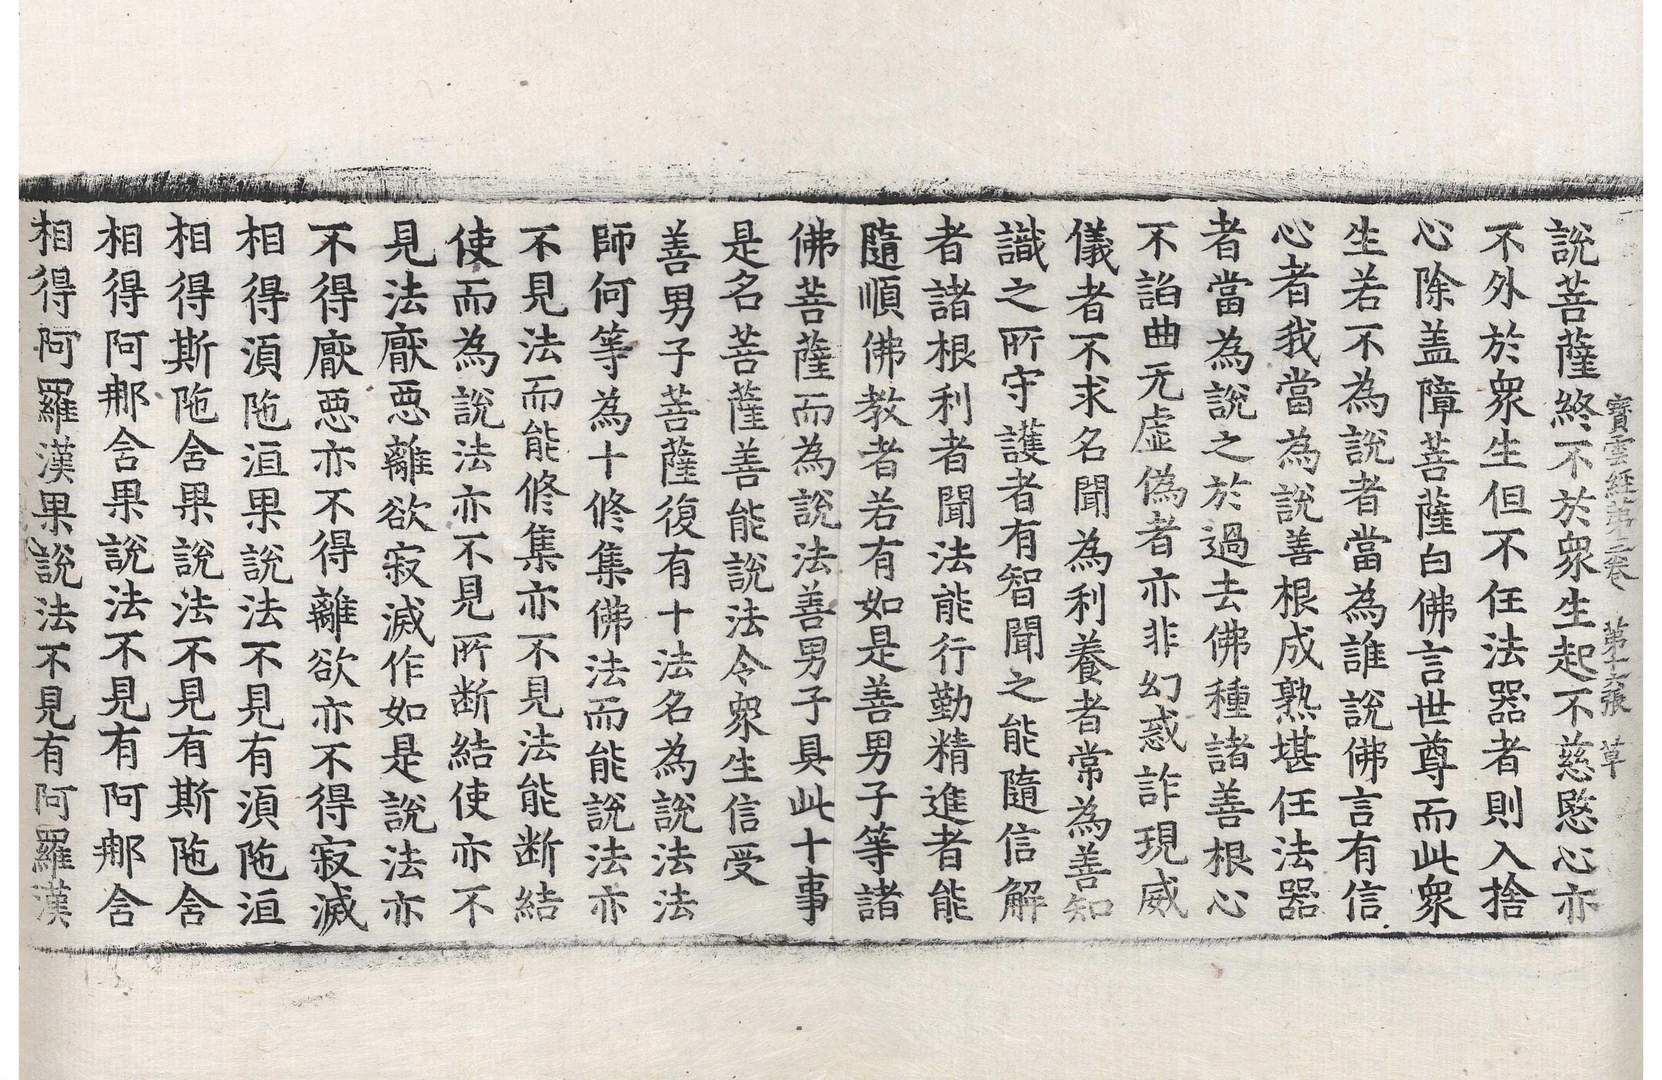 寶雲經第二卷 第十六張 草
說菩薩終不於衆生起不慈愍心亦
不外於衆生但不任法器者則入捨
心除盖障菩薩白佛言世尊而此衆
生若不為說者當為誰說佛言有信
心者我當為說善根成熟堪任法器
者當為說之於過去佛種諸善根心
不諂曲无虛偽者亦非幻惑詐現威
儀者不求名聞為利養者常為善知
識之所守護者有智聞之能隨信解
者諸根利者聞法能行勤精進者能
隨順佛教者若有如是善男子等諸
佛菩薩而為說法善男子具此十事
是名菩薩善能說法令衆生信受
善男子菩薩復有十法名為說法法
師何等為十修集佛法而能說法亦
不見法而能修集亦不見法能断結
使而為說法亦不見所断結使亦不
見法厭惡離欲寂滅作如是說法亦
不得厭惡亦不得離欲亦不得寂滅
相得湏陁洹果說法不見有湏陁洹
相得斯陁含果說法不見有斯陁含
相得阿那含果說法不見有阿那含
相得阿羅漢果說法不見有阿羅漢